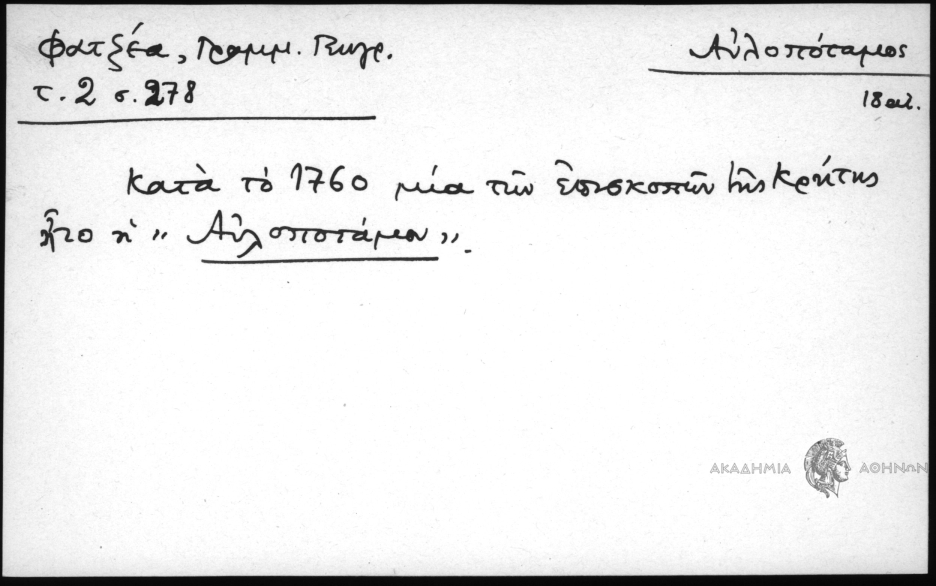 Φατζέα, Γραμμ. Γεωγρ.
τ. 2 σ. 278
Αὐλοπόταμος
18 αι.
Κατὰ τὸ 1760 μία τῶν ἐπισκοπῶν τῆς Κρήτης
ἦτο ἡ „ Αὐλοποτάμου ”.
ΑΚΑΔΗΜΙΑ ΑΘΗΝΩΝ